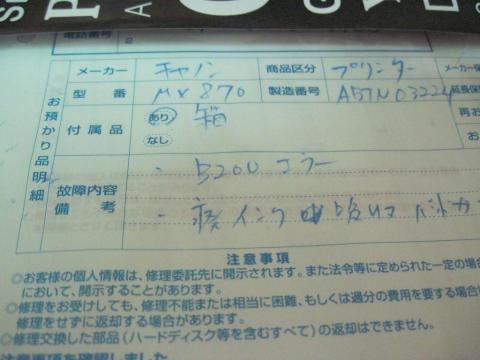 電話番号
メーカー キャノン 商品区分 プリンター メーカー保
型番 MX870 製造番号 ABTN03224 延長保
お預かり品明細
付属品 あり 箱 再お
なし お
故障内容 ・B200エラー
備考 ・ インク
注意事項
◎お客様の個人情報は、修理委託先に開示されます。また法令等に定められた一定の場合
において、開示することがあります。
◎修理をお受けしても、修理不能または相当に困難、もしくは過分の費用を要する場合に
修理をせずに返却する場合があります。
◎修理交換した部品(ハードディスク等を含むすべて)の返却はできません。
注意事項を確認しました